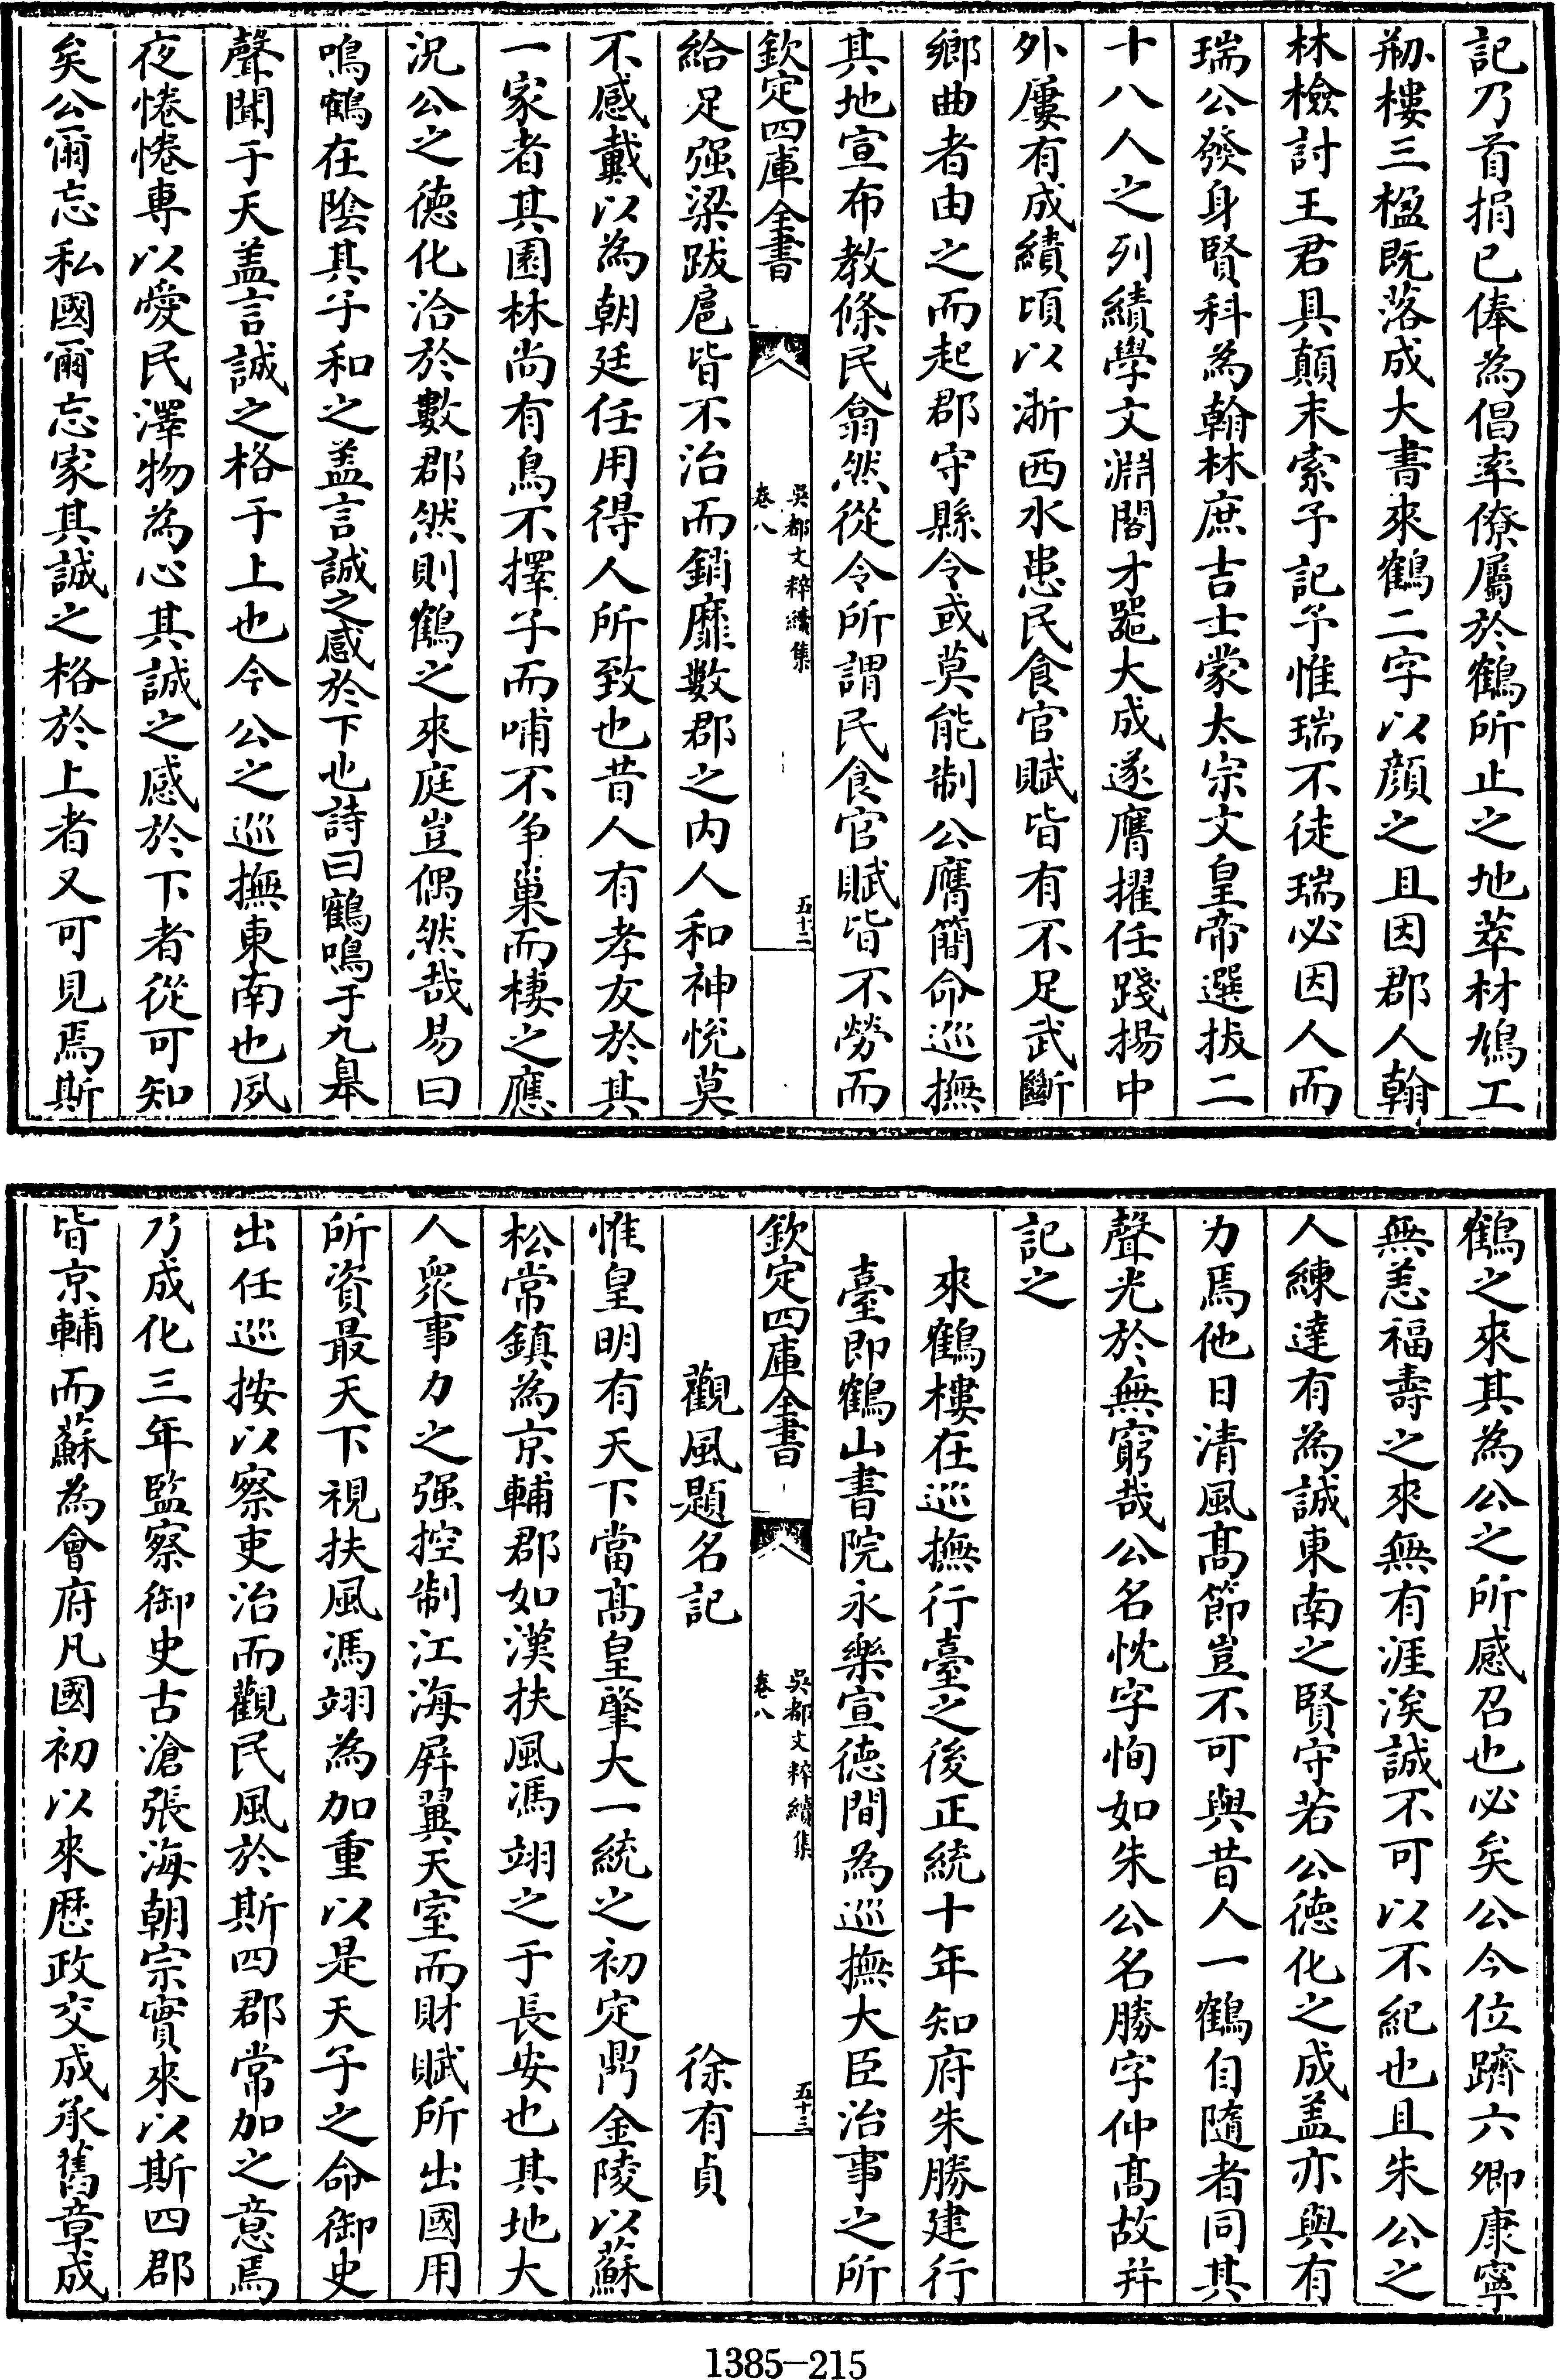 記乃首捐已俸為倡率僚屬於鶴所止之地萃材鳩工
刱樓三楹既落成大書來鶴二字以顔之且因郡人翰
林檢討王君具顛末索予記予惟瑞不徒瑞必因人而
瑞公發身賢科為翰林庶吉士蒙太宗文皇帝選拔二
十八人之列績學文淵閣才器大成遂膺擢任踐揚中
外屢有成績頃以浙西水患民食官賦皆有不足武斷
鄉曲者由之而起郡守縣令或莫能制公膺簡命巡撫
其地宣布教條民翕然從令所謂民食官賦皆不勞而
欽定四庫全書
吳都文粹續集
卷八
五十二
給足强梁跋扈皆不治而銷靡數郡之内人和神悅莫
不感戴以為朝廷任用得人所致也昔人有孝友於其
一家者其園林尚有鳥不擇子而哺不争巢而棲之應
況公之德化洽於數郡然則鶴之來庭豈偶然哉易曰
鳴鶴在陰其子和之盖言誠之感於下也詩曰鶴鳴于九臯
聲聞于天盖言誠之格于上也今公之巡撫東南也夙
夜惓惓專以愛民澤物為心其誠之感於下者從可知
矣公爾忘私國爾忘家其誠之格於上者又可見焉斯
鶴之來其為公之所感召也必矣公今位躋六卿康寧
無恙福壽之來無有涯涘誠不可以不紀也且朱公之
人練達有為誠東南之賢守若公德化之成盖亦與有
力焉他日清風髙節豈不可與昔人一鶴自隨者同其
聲光於無窮哉公名忱字恂如朱公名勝字仲髙故幷
記之
來鶴樓在巡撫行臺之後正統十年知府朱勝建行
臺即鶴山書院永樂宣德間為巡撫大臣治事之所
欽定四庫全書
吳都文粹續集
卷八
五十三
觀風題名記
徐有貞
惟皇明有天下當髙皇肇大一統之初定鼎金陵以蘇
松常鎮為京輔郡如漢扶風馮翊之于長安也其地大
人衆事力之强控制江海屏翼天室而財賦所出國用
所資最天下視扶風馮翊為加重以是天子之命御史
出任巡按以察吏治而觀民風於斯四郡常加之意焉
乃成化三年監察御史古滄張海朝宗實來以斯四郡
皆京輔而蘇為會府凡國初以來歴政交成承舊章成
1385-215